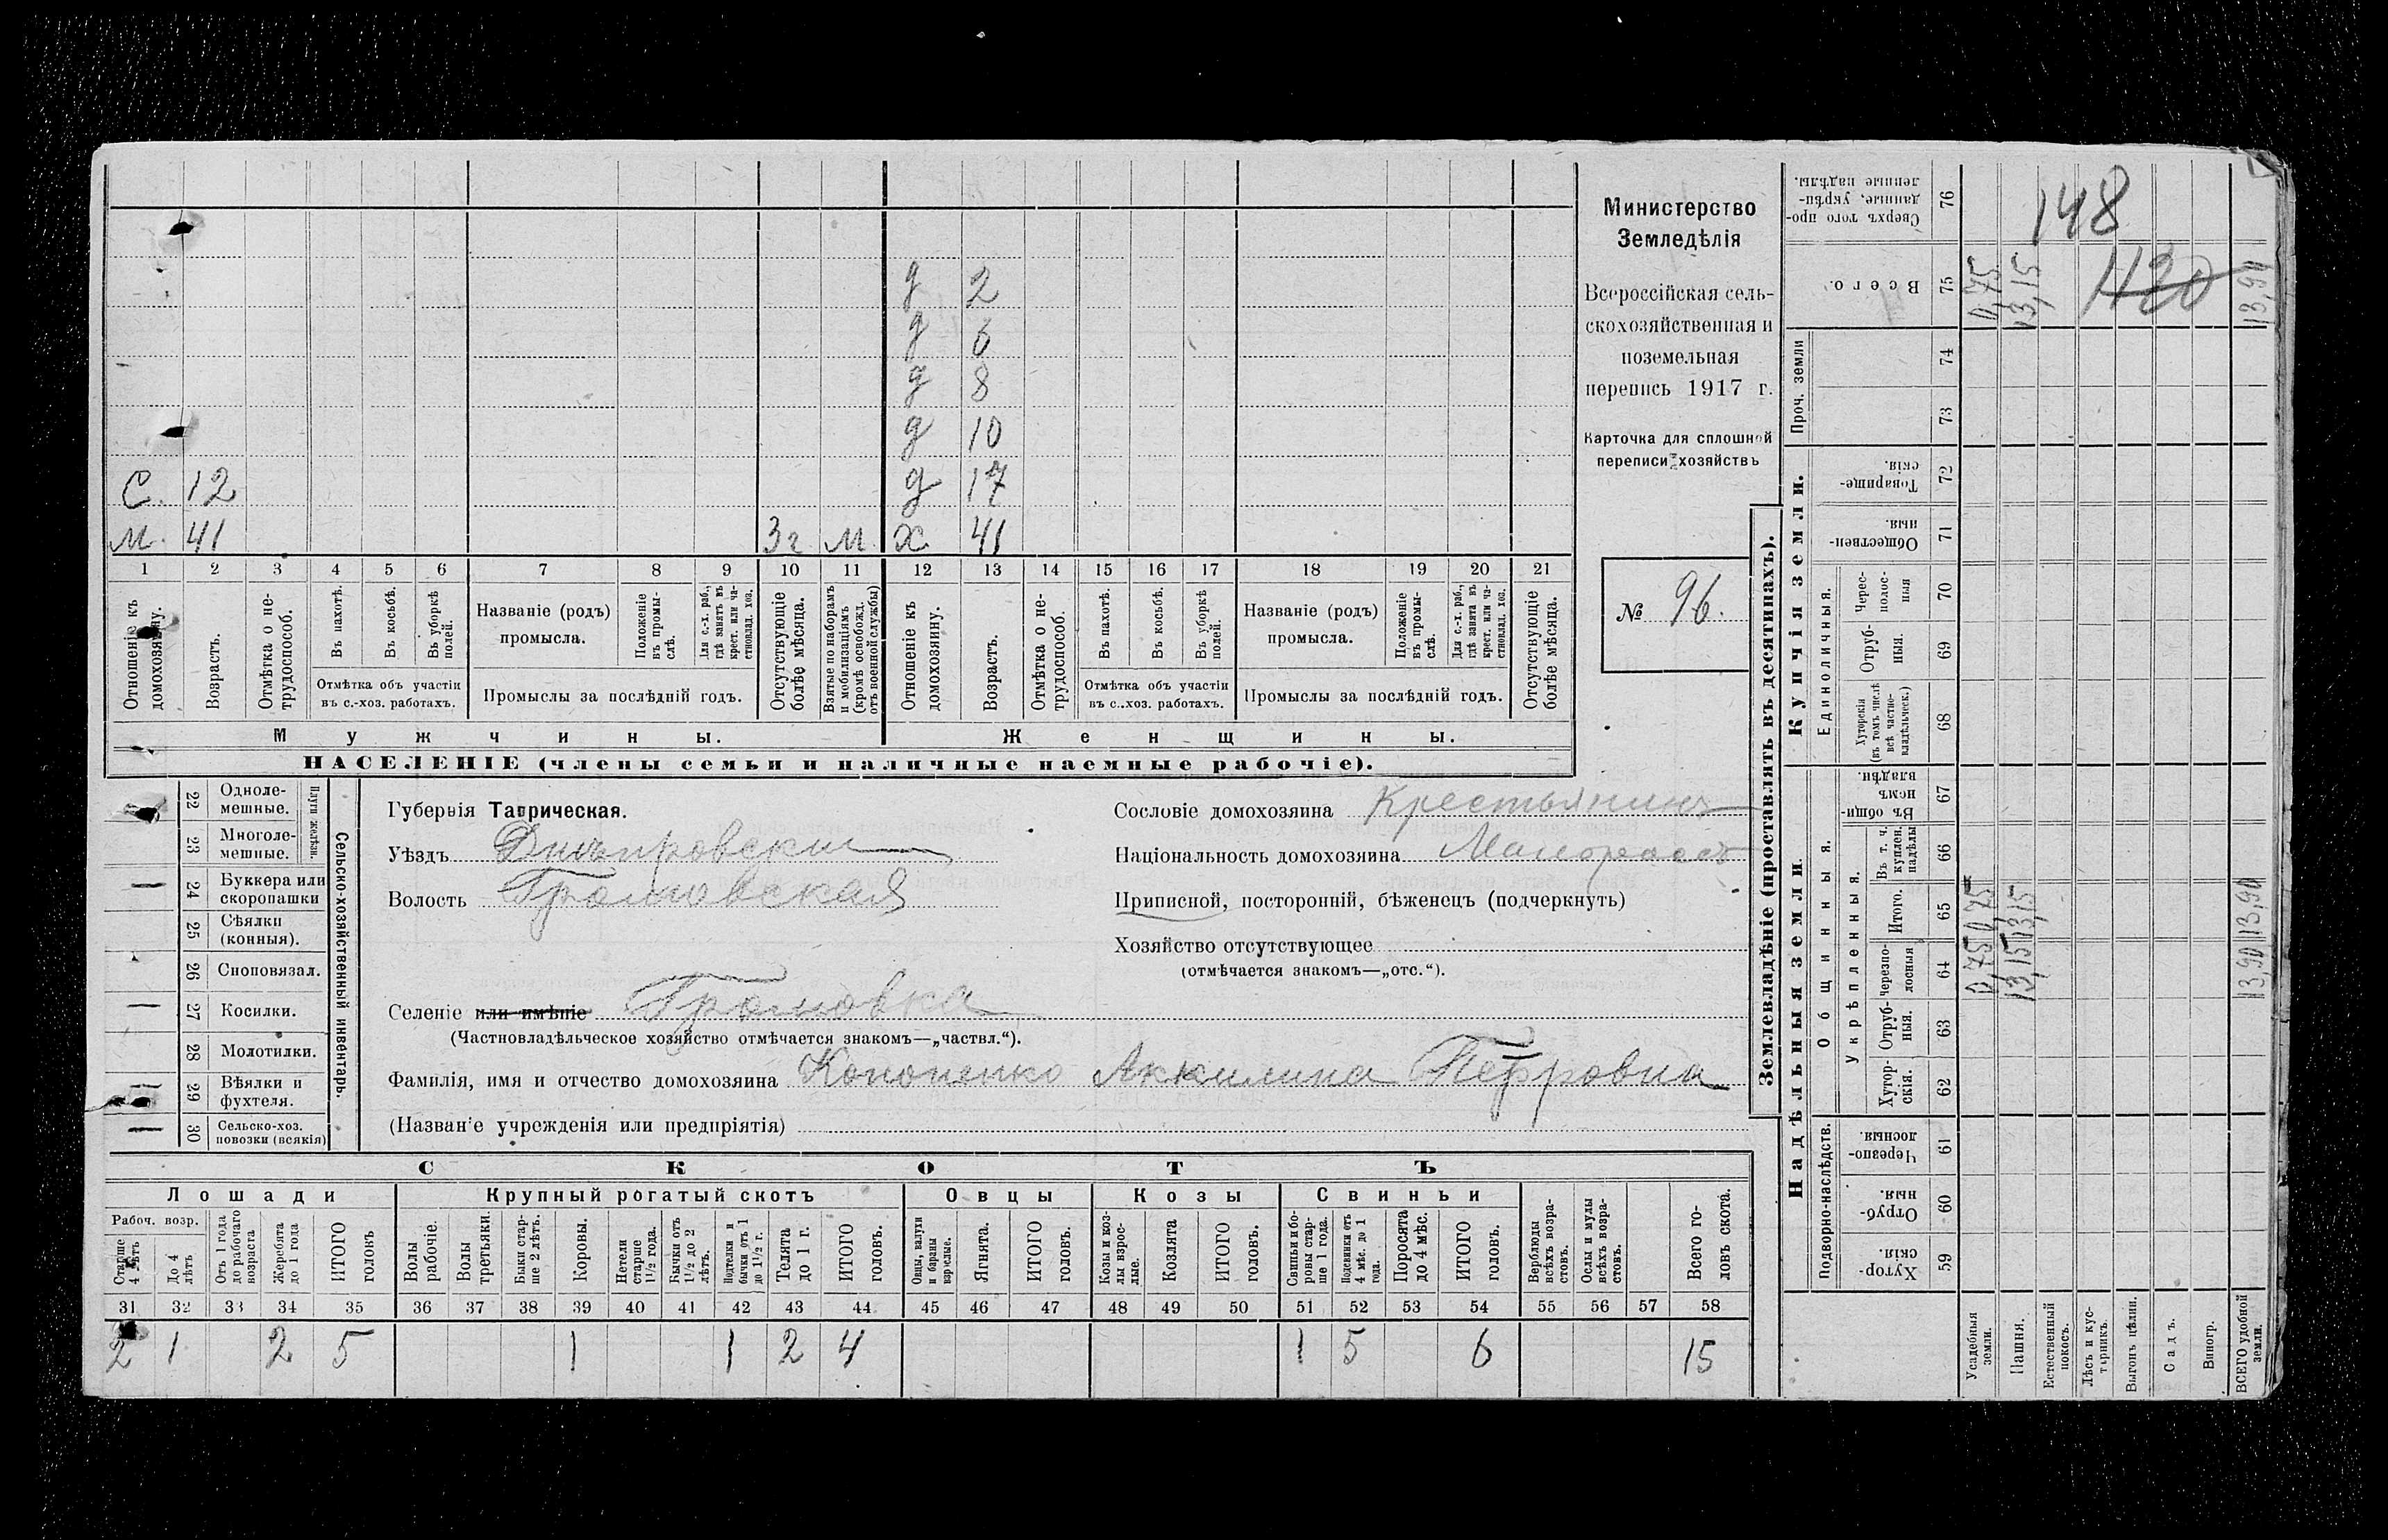 148
0,75
13,15
1420
13,90
Министерство
Земледѣлія
Всероссійская сель-
скохозяйственная и
поземельная
перепись 1917 г.
Карточка для сплошной
переписи хозяйствъ
№ 96.
д 2
д 6
д 8
д 10
С. 12 д 17
М. 41 3 г М. х 41
1 2 3 4 5 6 7 8 9 10 11 12 13 14 15 16 17 18 19 20 21
Отношеніе къ домохозяину.
Возрастъ.
Отмѣтка о не-
трудоспособ.
Въ пахотѣ.
Въ косьбѣ.
Въ уборкѣ
полей.
Отмѣтка объ участіи
въ с.-хоз. работахъ.
Названіе (родъ)
промысла.
Положеніе
въ промы-
слѣ.
Для с.-х. раб.,
гдѣ занятъ въ
крест. или ча-
стновлад. хоз.
Промыслы за послѣдній годъ.
Отсутствующіе
болѣе мѣсяца.
Взятые по наборамъ
и мобилизаціямъ
(кромѣ освобожд.
отъ военной службы)
Отношеніе къ
домохозяину.
Возрастъ.
Отмѣтка о не-
трудоспособ.
Въ пахотѣ.
Въ косьбѣ.
Въ уборкѣ
полей.
Отмѣтка объ участіи
въ с..хоз. работахъ.
Названіе (родъ)
промысла.
Положеніе
въ промы-
слѣ.
Для с.-х. раб.,
гдѣ занята въ
крест. или ча-
стновлад. хоз.
Промыслы за послѣдній годъ.
Отсутствующіе
болѣе мѣсяца.
Мужчины. Женщины.
НАСЕЛЕНІЕ (члены семьи и наличные наемные рабочіе).
22 Одноле-
мешные.
23 Многоле-
мешные.
Плуги желѣзн.
24 Буккера или
скоропашки
25 Сѣялки
(конныя).
26 Сноповязал.
27 Косилки.
28 Молотилки.
29 Вѣялки и
фухтеля.
30 Сельско-хоз.
повозки (всякія)
Сельско-хозяйственный инвентарь.
Губернія Таврическая.
Уѣздъ Днѣпровскій
Волость Громовская
Селеніе или имѣніе Громовка
(Частновладѣльческое хозяйство отмѣчается знакомъ—„частвл.“).
Фамилія, имя и отчество домохозяина Кононенко Аккилина Петровна
(Названіе учрежденія или предпріятія)
Сословіе домохозяина Крестьянинъ
Національность домохозяина Малороссъ
Приписной, посторонній, бѣженецъ (подчеркнуть)
Хозяйство отсутствующее
(отмѣчается знакомъ—„отс.“).
СКОТЪ
Лошади Крупный рогатый скотъ Овцы Козы Свиньи
Рабоч. возр.
Старше
4 лѣтъ
До 4
лѣтъ
Отъ 1 года
до рабочаго
возраста
Жеребята
до 1 года
ИТОГО
головъ
Волы
рабочіе.
Волы
третьяки.
Быки стар-
ше 2 лѣтъ.
Коровы.
Нетели
старше
1½ года.
Бычки отъ
1½ до 2
лѣтъ.
Подтелки и
бычки отъ 1
до 1½ г.
Телята
до 1 г.
ИТОГО
головъ.
Овцы, валухи
и бараны
взрослые.
Ягнята.
ИТОГО
головъ.
Козы и коз-
лы взрос-
лые.
Козлята
ИТОГО
головъ.
Свиньи и бо-
ровы стар-
ше 1 года.
Подсвинки отъ
4 мѣс. до 1
года.
Поросята
до 4 мѣс.
ИТОГО
головъ.
Верблюды
всѣхъ возра-
стовъ.
Ослы и мулы
всѣхъ возра-
стовъ.
Всего го-
ловъ скота.
31 32 33 34 35 36 37 38 39 40 41 42 43 44 45 46 47 48 49 50 51 52 53 54 55 56 57 58
2 1 2 5 1 1 2 4 1 5 6 15
Землевладѣніе (проставлять въ десятинахъ).
Сверхъ того про-
данные, укрѣп-
ленные надѣлы.
76
Всего.
75
Проч. земли
74
73
Купчія земли.
Товарище-
скія.
72
Обществен-
ныя.
71
Единоличныя.
Черес-
полос-
ныя
70
Отруб-
ныя.
69
Хуторскія
(въ томъ числѣ
всѣ частно-
владѣльческ.)
68
Надѣльныя земли.
Общинныя.
Въ общи-
номъ
владѣн.
67
Укрѣпленныя.
Въ т. ч.
куплен.
надѣлы
66
Итого.
65
Черезпо-
лосныя
64
Отруб-
ныя.
63
Хутор-
скія.
62
Подворно-наслѣдств.
Черезпо-
лосныя.
61
Отруб-
ныя.
60
Хутор-
скія.
59
0,75 0,75
13,15 13,15
13,90 13,90
Усадебныя
земли.
Пашня.
Естественный
покосъ.
Лѣсъ и кус-
тарникъ.
Выгонъ цѣлин.
Садъ.
Виногр.
ВСЕГО удобной
земли.